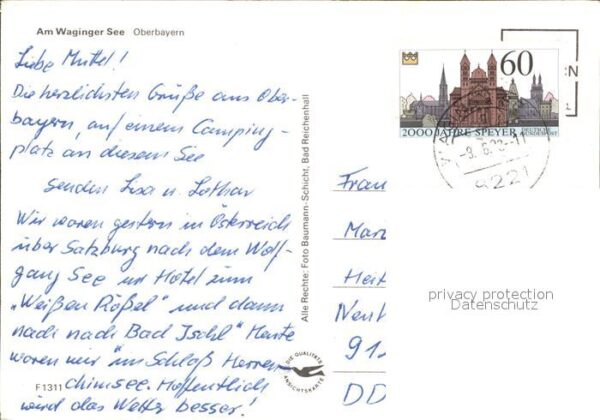 Am Waginger See Oberbayern
Liebe Muttel!
Die herzlichsten Grüße aus Ober-
bayern, auf einem Camping-
platz an diesem See
senden Lisa u. Lothar
Wir waren gestern in Österreich
über Salzburg nach dem Wolf-
gang See im Hotel zum
„Weißen Rößel" und dann
nach nach Bad Ischl" Heute
waren wir im Schloß Herren-
chimsee. Hoffentlich
wird das Wetter besser!
F 1311
Alle Rechte: Foto Baumann-Schicht, Bad Reichenhall
DIE QUALITÄTS
ANSICHTSKARTE
60
2000 JAHRE SPEYER
DEUTSCHE
BUNDESPOST
8221
Frau
Mar
Hei
Neu
91
DD
privacy protection
Datenschutz